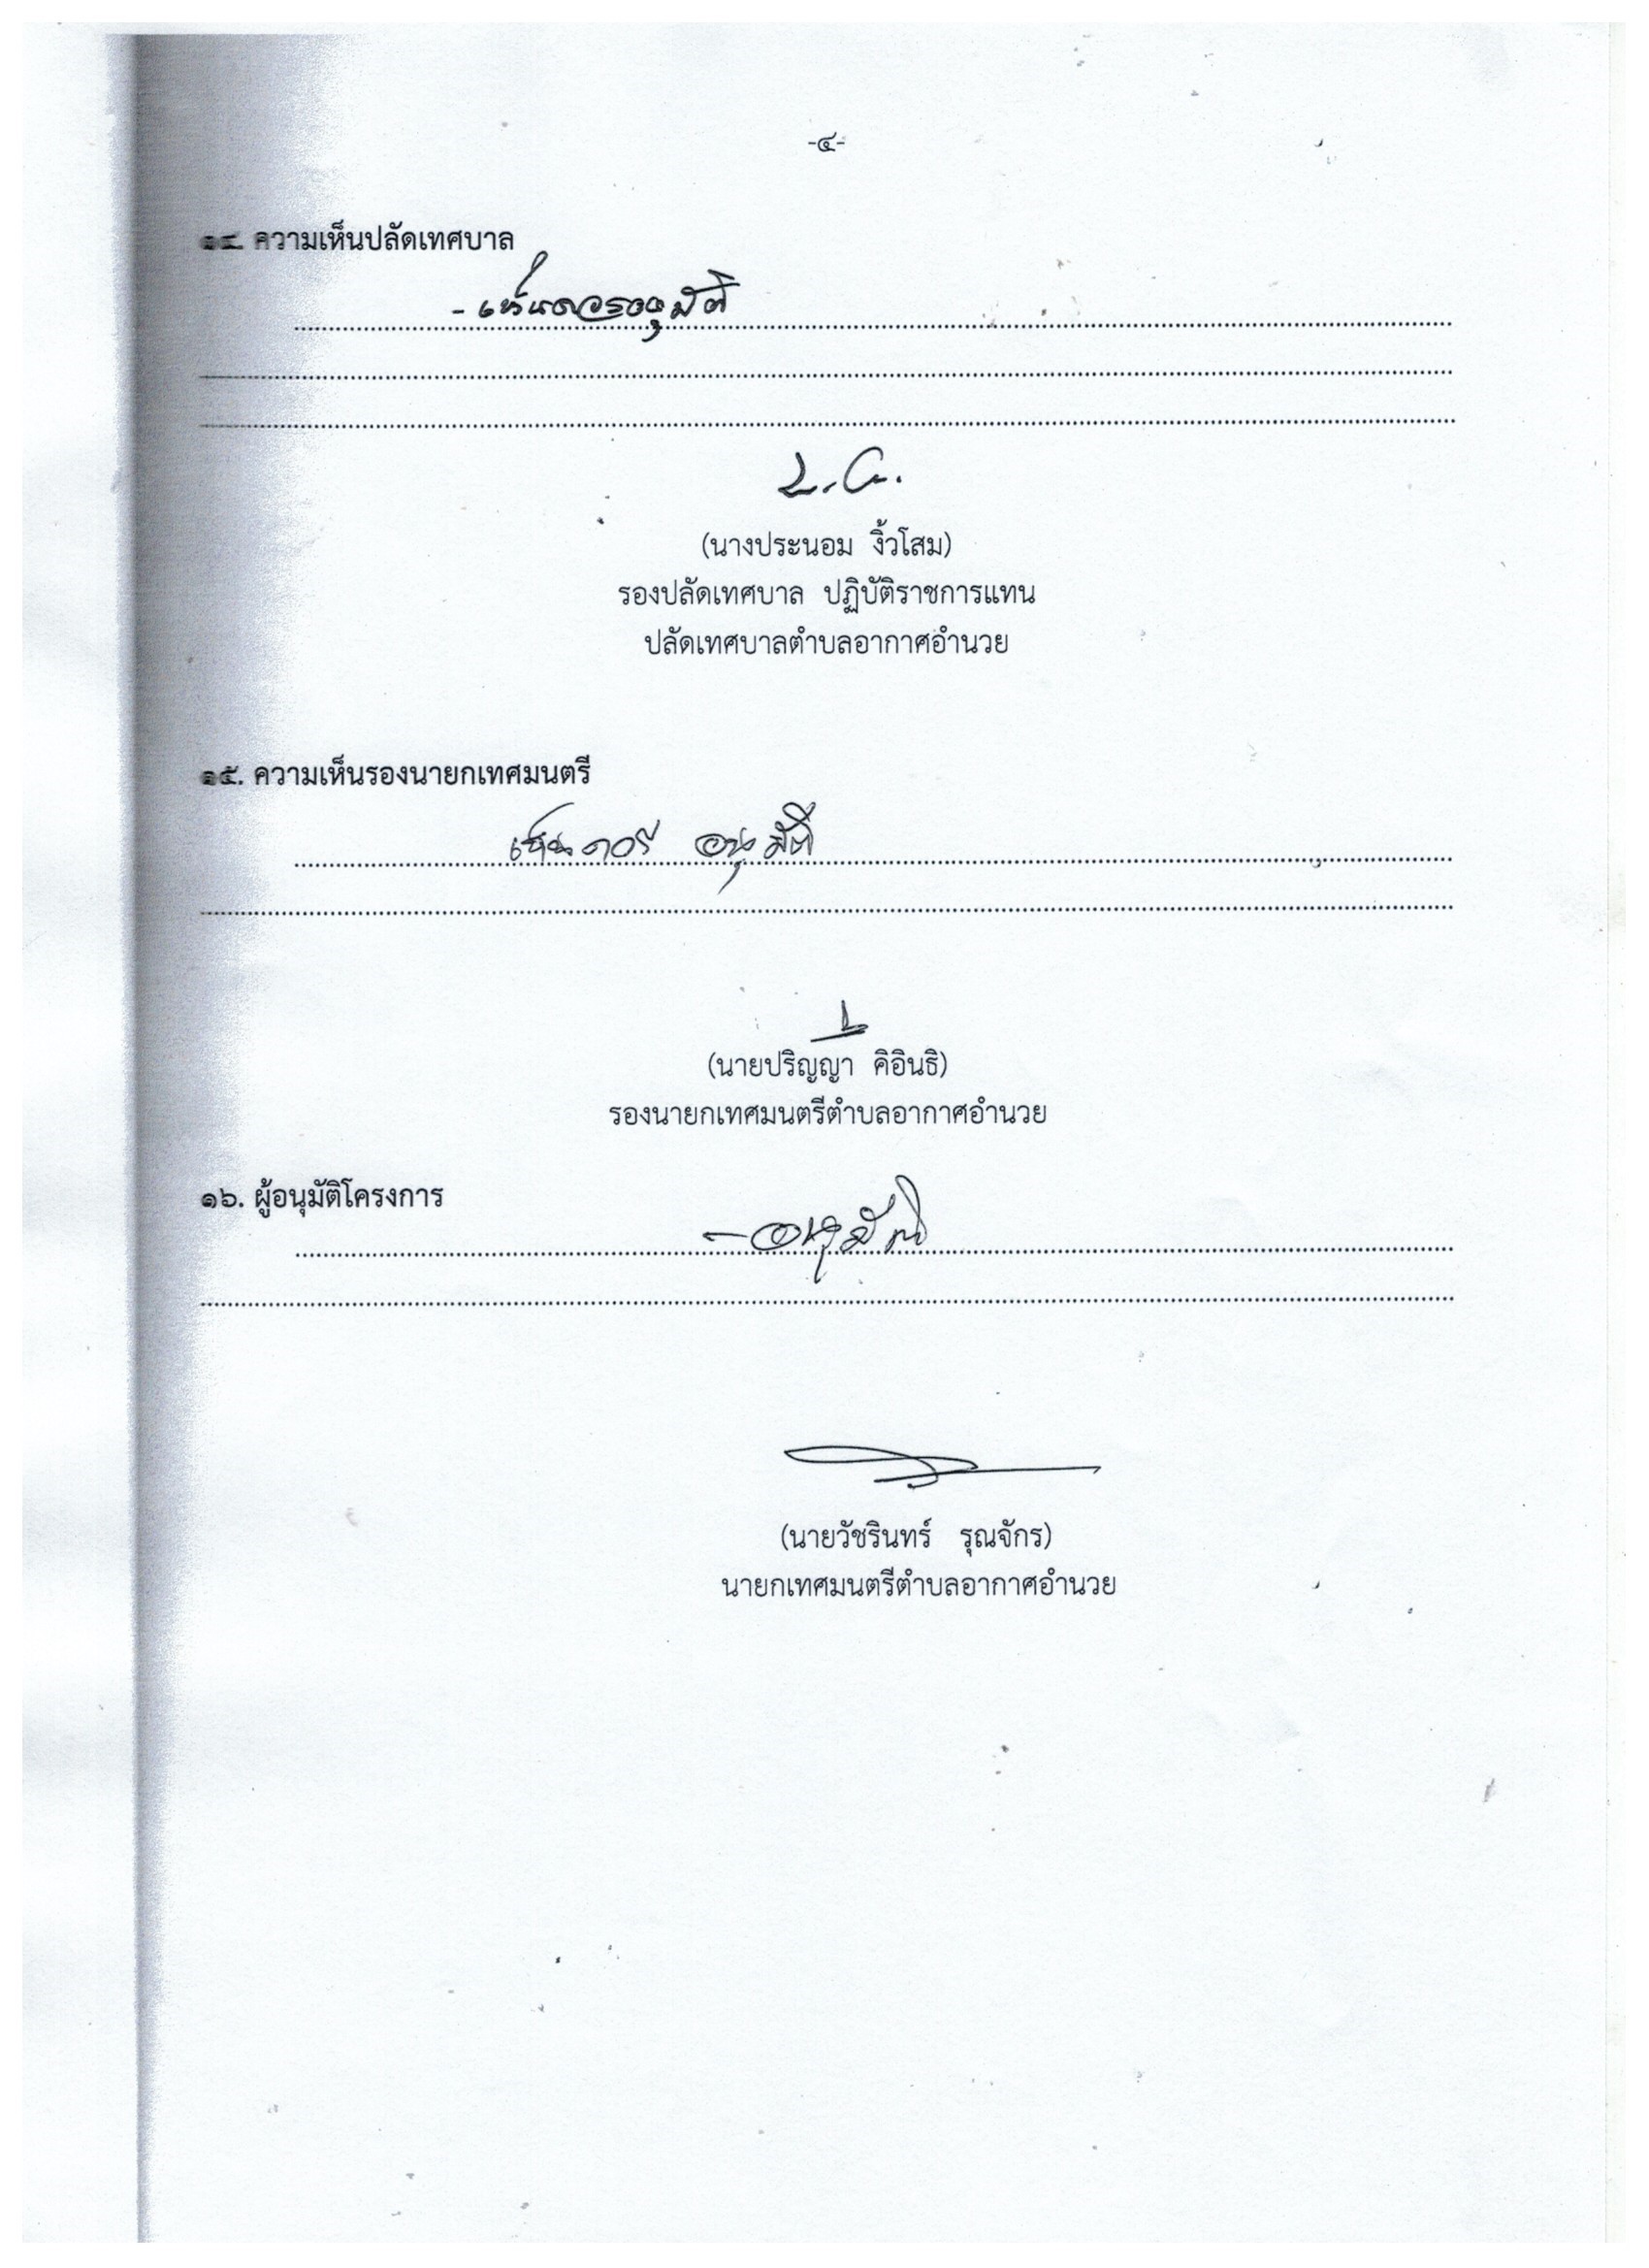 -๔-
๑๔. ความเห็นปลัดเทศบาล
- เห็นควรอนุมัติ
(นางประนอม งิ้วโสม)
รองปลัดเทศบาล ปฏิบัติราชการแทน
ปลัดเทศบาลตำบลอากาศอำนวย
๑๕. ความเห็นรองนายกเทศมนตรี
เห็นควร อนุมัติ
(นายปริญญา คิอินธิ)
รองนายกเทศมนตรีตำบลอากาศอำนวย
๑๖. ผู้อนุมัติโครงการ
- อนุมัติ
(นายวัชรินทร์ รุณจักร)
นายกเทศมนตรีตำบลอากาศอำนวย